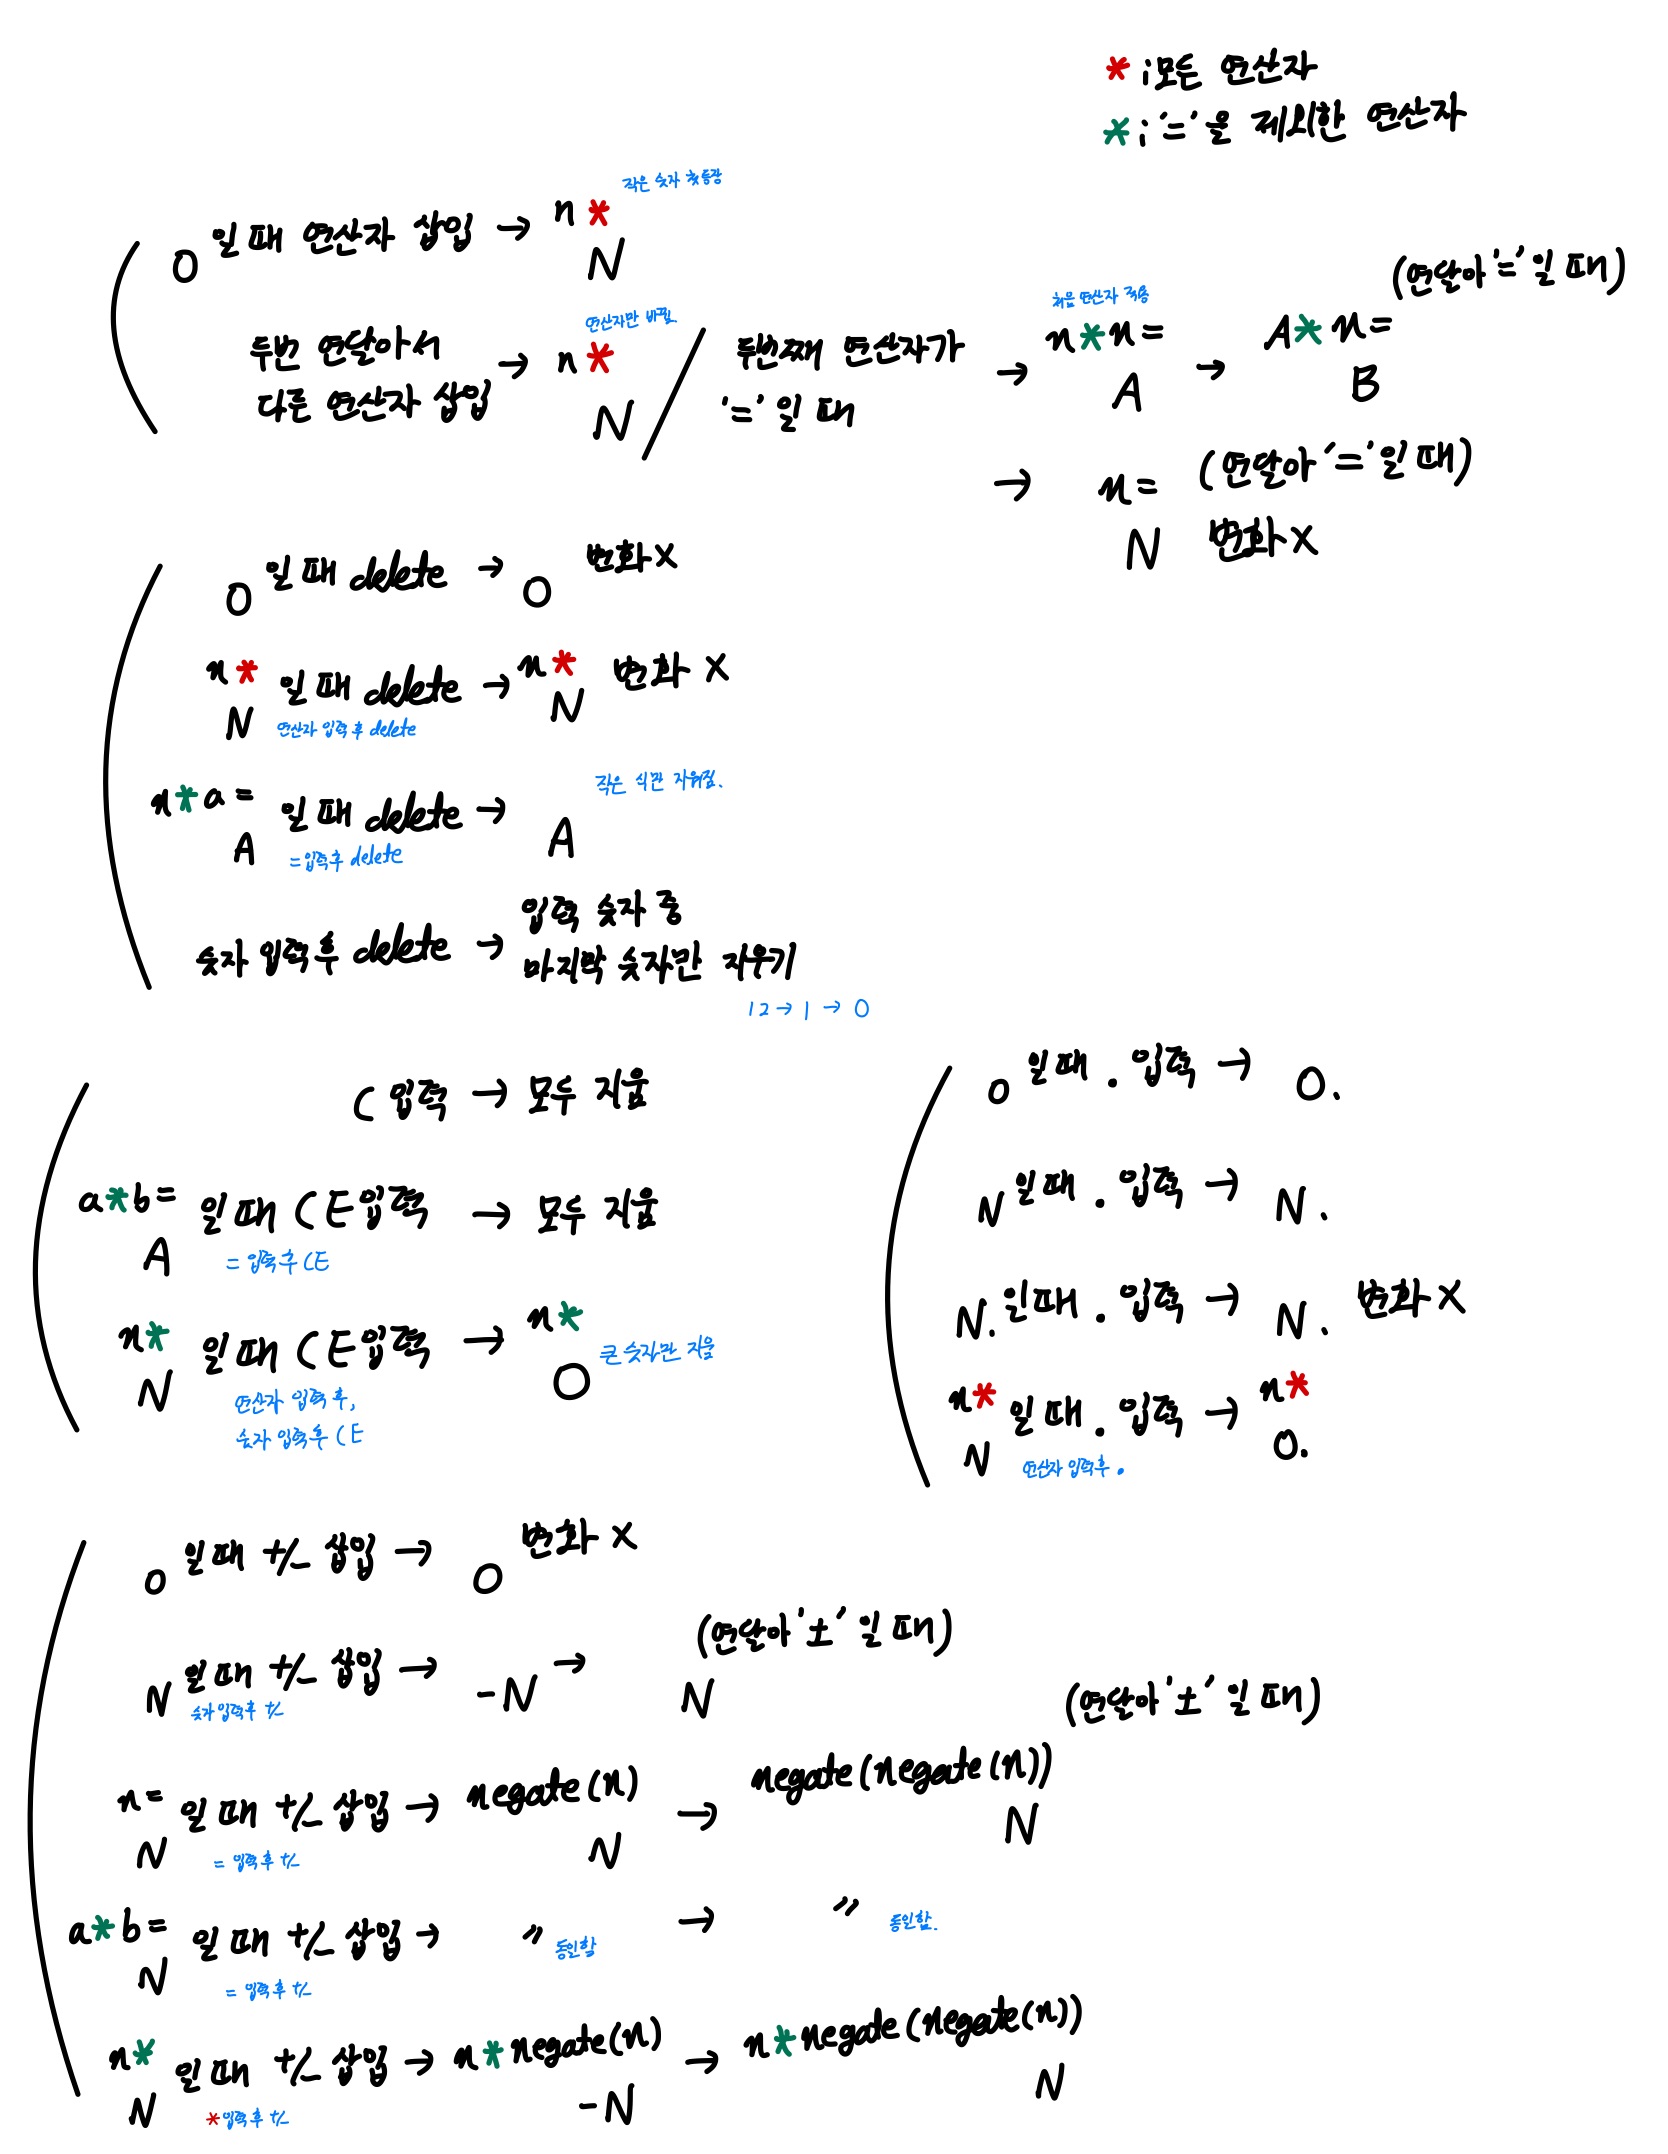 * ; 모든 연산자
* ; '='을 제외한 연산자
작은 숫자 첫등장
0 일 때 연산자 삽입 → n *
N
연산자만 바뀜.
두번 연달아서
다른 연산자 삽입 → n *
N
/ 두번째 연산자가
'=' 일 때
처음 연산자 적용
→ n * n =
A
(연달아 '=' 일 때)
→ A * n =
B
→ n = (연달아 '=' 일 때)
N 변화 X
0 일 때 delete → 0 변화 X
n * 일 때 delete → n * 변화 X
N N
연산자 입력 후 delete
n * a = 일 때 delete → 작은 식만 지워짐.
A A
= 입력 후 delete
숫자 입력 후 delete → 입력 숫자 중
마지막 숫자만 지우기
12 → 1 → 0
C 입력 → 모두 지움
a * b = 일 때 CE 입력 → 모두 지움
A
= 입력 후 CE
n * 일 때 CE 입력 → n *
N 0 큰 숫자만 지움
연산자 입력 후,
숫자 입력 후 CE
0 일 때 . 입력 → 0.
N 일 때 . 입력 → N.
N. 일 때 . 입력 → N. 변화 X
n * 일 때 . 입력 → n *
N 0.
연산자 입력 후 .
0 일 때 +/- 삽입 → 0 변화 X
(연달아 '±' 일 때)
N 일 때 +/- 삽입 → -N → N
숫자 입력 후 +/-
(연달아 '±' 일 때)
n = 일 때 +/- 삽입 → negate(n) → negate(negate(n))
N N N
= 입력 후 +/-
a * b = 일 때 +/- 삽입 → 〃 동일함 → 〃 동일함.
N
= 입력 후 +/-
n * 일 때 +/- 삽입 → n * negate(n) → n * negate(negate(n))
N -N N
* 입력 후 +/-